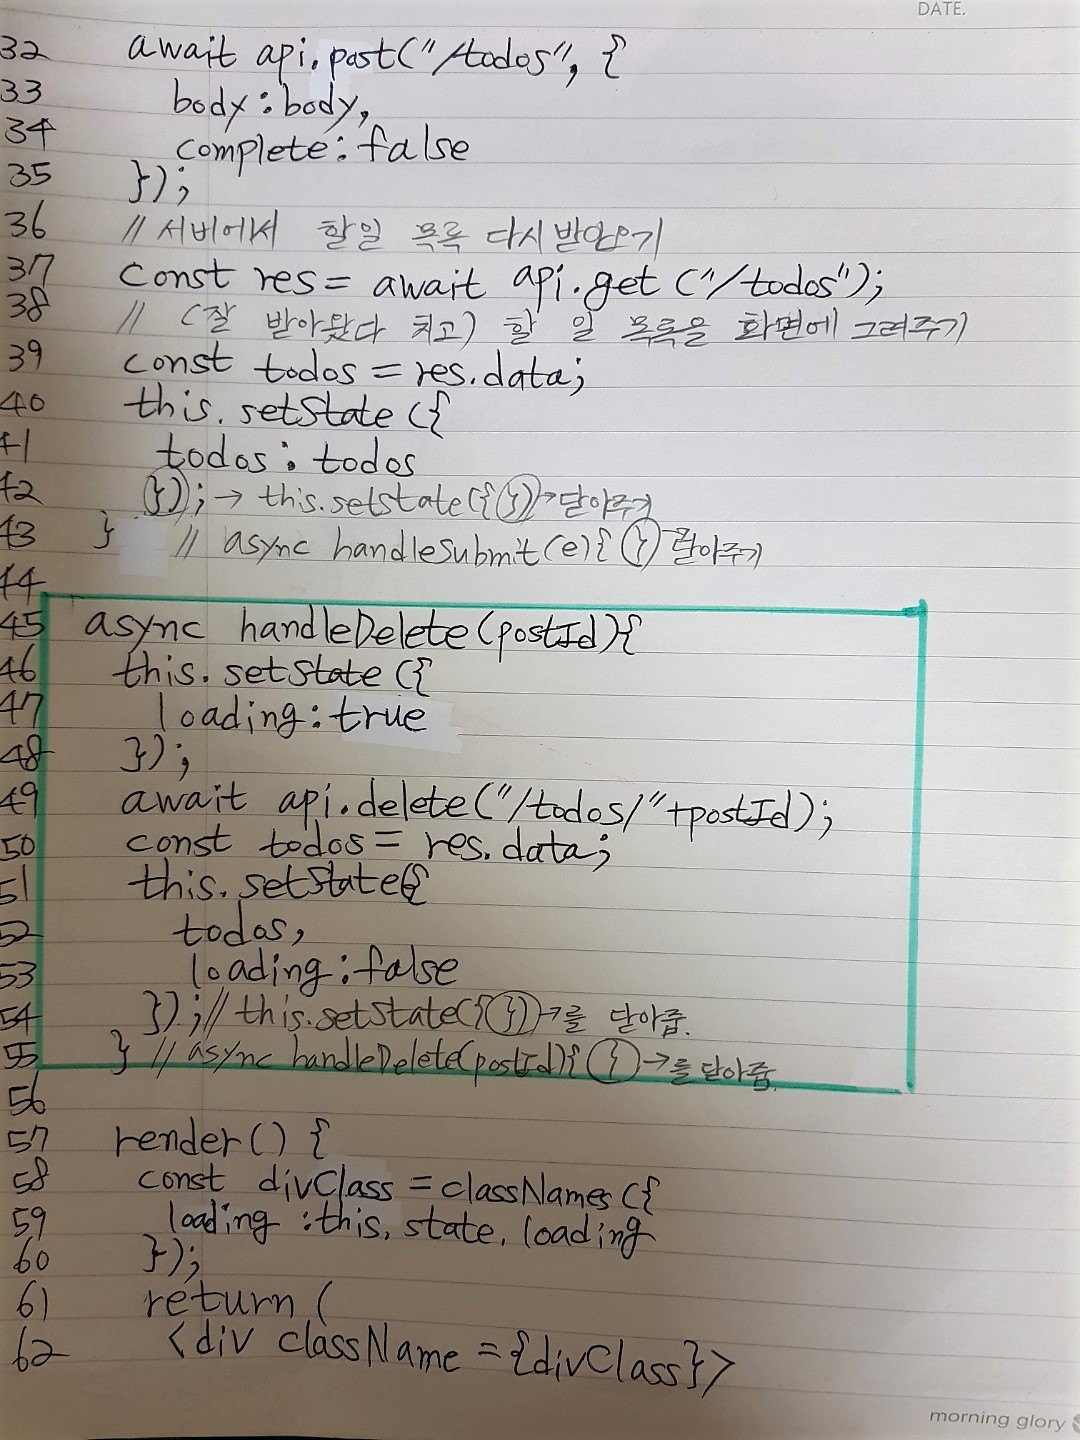 DATE.
32 await api.post("/todos", {
33 body:body,
34 complete:false
35 });
36 // 서버에서 할일 목록 다시 받아오기
37 const res= await api.get ("/todos");
38 // (잘 받아왔다 치고) 할 일 목록을 화면에 그려주기
39 const todos = res.data;
40 this.setState ({
41 todos: todos
42 }); → this.setState({ }) → 닫아주기
43 } // async handleSubmit(e){ } 닫아주기
44
45 async handleDelete(postId){
46 this.setState ({
47 loading:true
48 });
49 await api.delete("/todos/"+postId);
50 const todos = res.data;
51 this.setState({
52 todos,
53 loading:false
54 });// this.setState({ }) →를 닫아줌.
55 } // async handleDelete(postId){ } →를 닫아줌
56
57 render() {
58 const divClass = classNames({
59 loading :this.state.loading
60 });
61 return (
62 <div className={divClass}>
morning glory